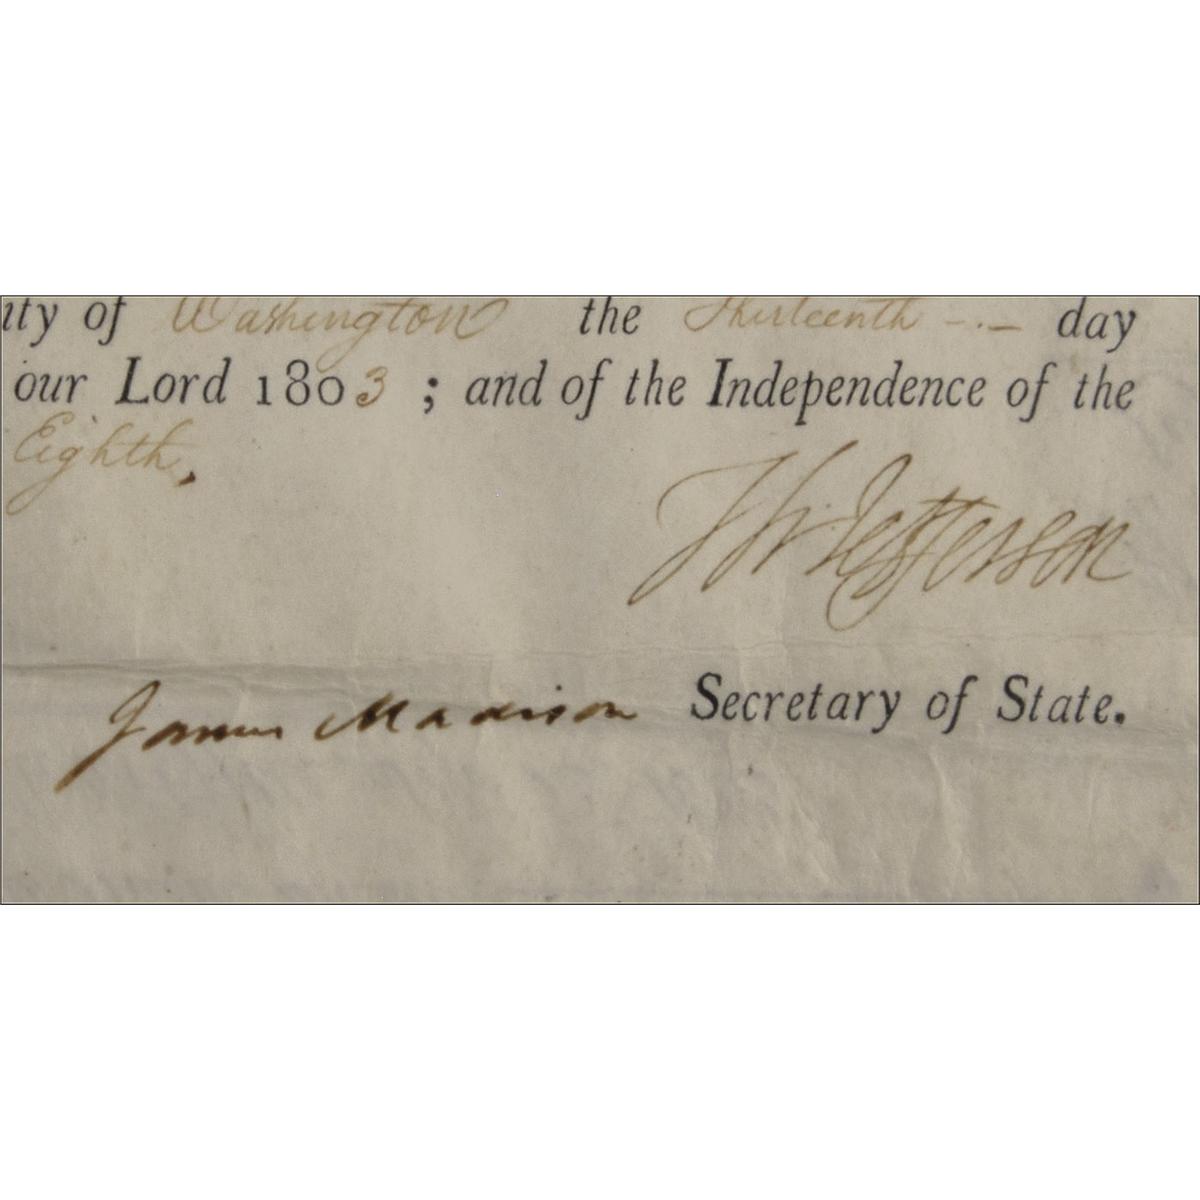 ity of Washington the Thirteenth -.- day
our Lord 1803 ; and of the Independence of the
Eighth.
Th Jefferson
James Madison Secretary of State.